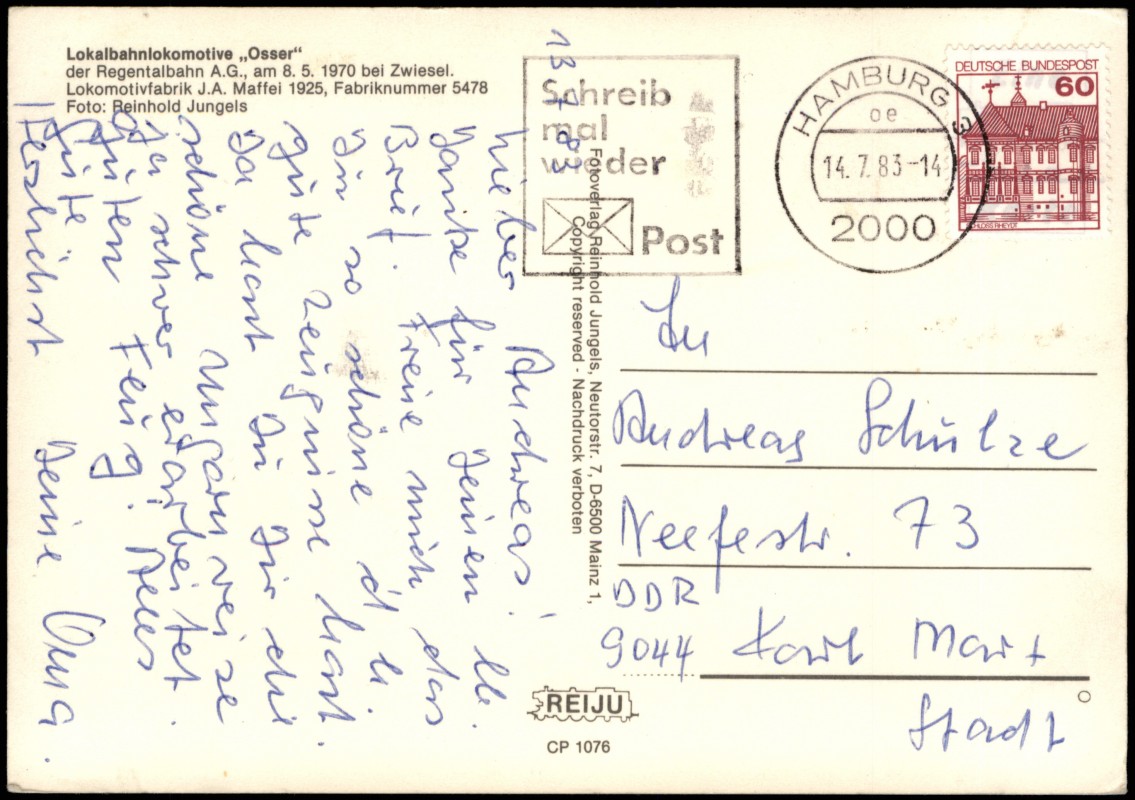 Lokalbahnlokomotive „Osser“
der Regentalbahn A.G., am 8. 5. 1970 bei Zwiesel.
Lokomotivfabrik J.A. Maffei 1925, Fabriknummer 5478
Foto: Reinhold Jungels
Schreib
mal
wieder
Post
HAMBURG 3
oe
14.7.83-14
2000
DEUTSCHE BUNDESPOST
60
SCHLOSS RHEYDT
13. 7. 83
Lieber Andreas!
Danke für Deinen lb.
Brief. Freue mich das
Du so schöne
gute Zeugnisse hast.
Da hast Du Dir die
schöne Ungarnreise
ja schwer erarbeitet.
guten Flug! Alles
Gute
Herzlichst Deine Oma.
Fotoverlag Reinhold Jungels, Neutorstr. 7, D-6500 Mainz 1,
Copyright reserved - Nachdruck verboten
An
Andreas Schulze
Neefestr. 73
DDR
9044 Karl Marx
Stadt
REIJU
CP 1076